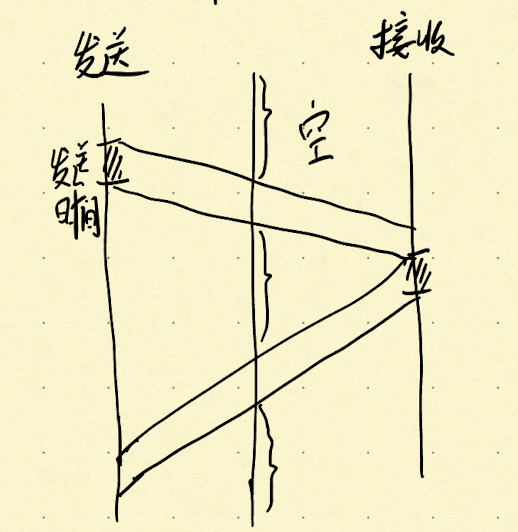 发送
接收
空
发送
时间